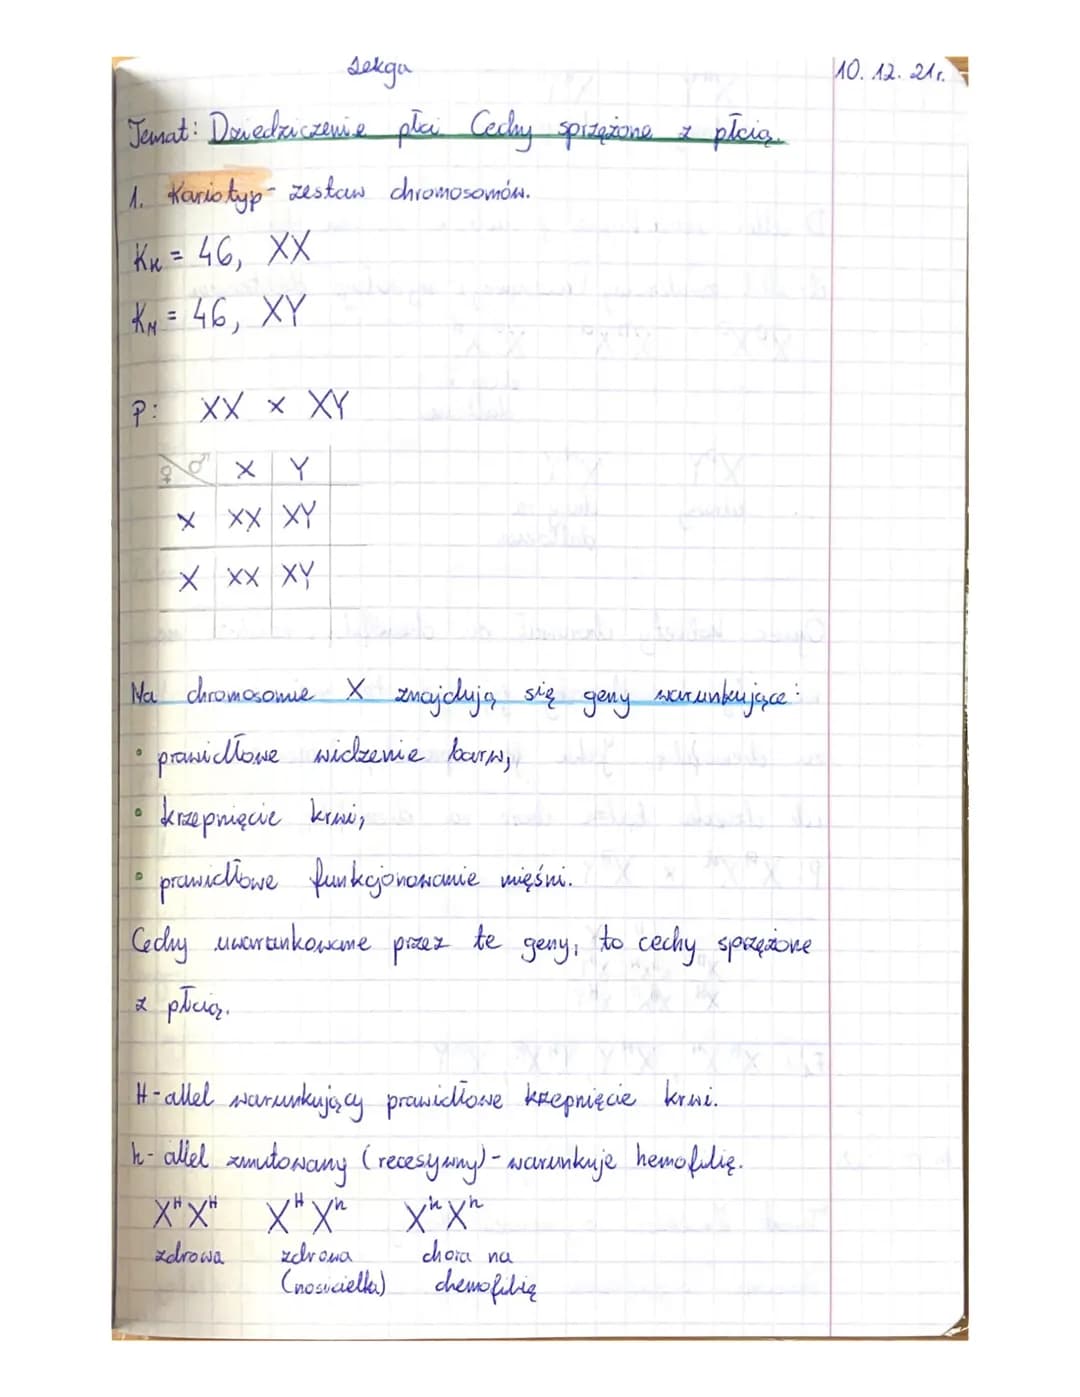 Lekcja 10. 12. 21r.
Temat: Dziedziczenie płci Cechy sprzężone z płcią.
1. Kariotyp - zestaw chromosomów.
KK = 46, XX
KM = 46, XY
P: XX × XY
♀ ♂ X Y
X XX XY
X XX XY
Na chromosomie X znajdują się geny warunkujące:
• prawidłowe widzenie barw,
• krzepnięcie krwi,
• prawidłowe funkcjonowanie mięśni.
Cechy uwarunkowane przez te geny, to cechy sprzężone
z płcią.
H - allel warunkujący prawidłowe krzepnięcie krwi.
h - allel zmutowany (recesywny) - warunkuje hemofilię.
XᴴXᴴ XᴴXʰ XʰXʰ
zdrowa zdrowa chora na
(nosicielka) chemofilię